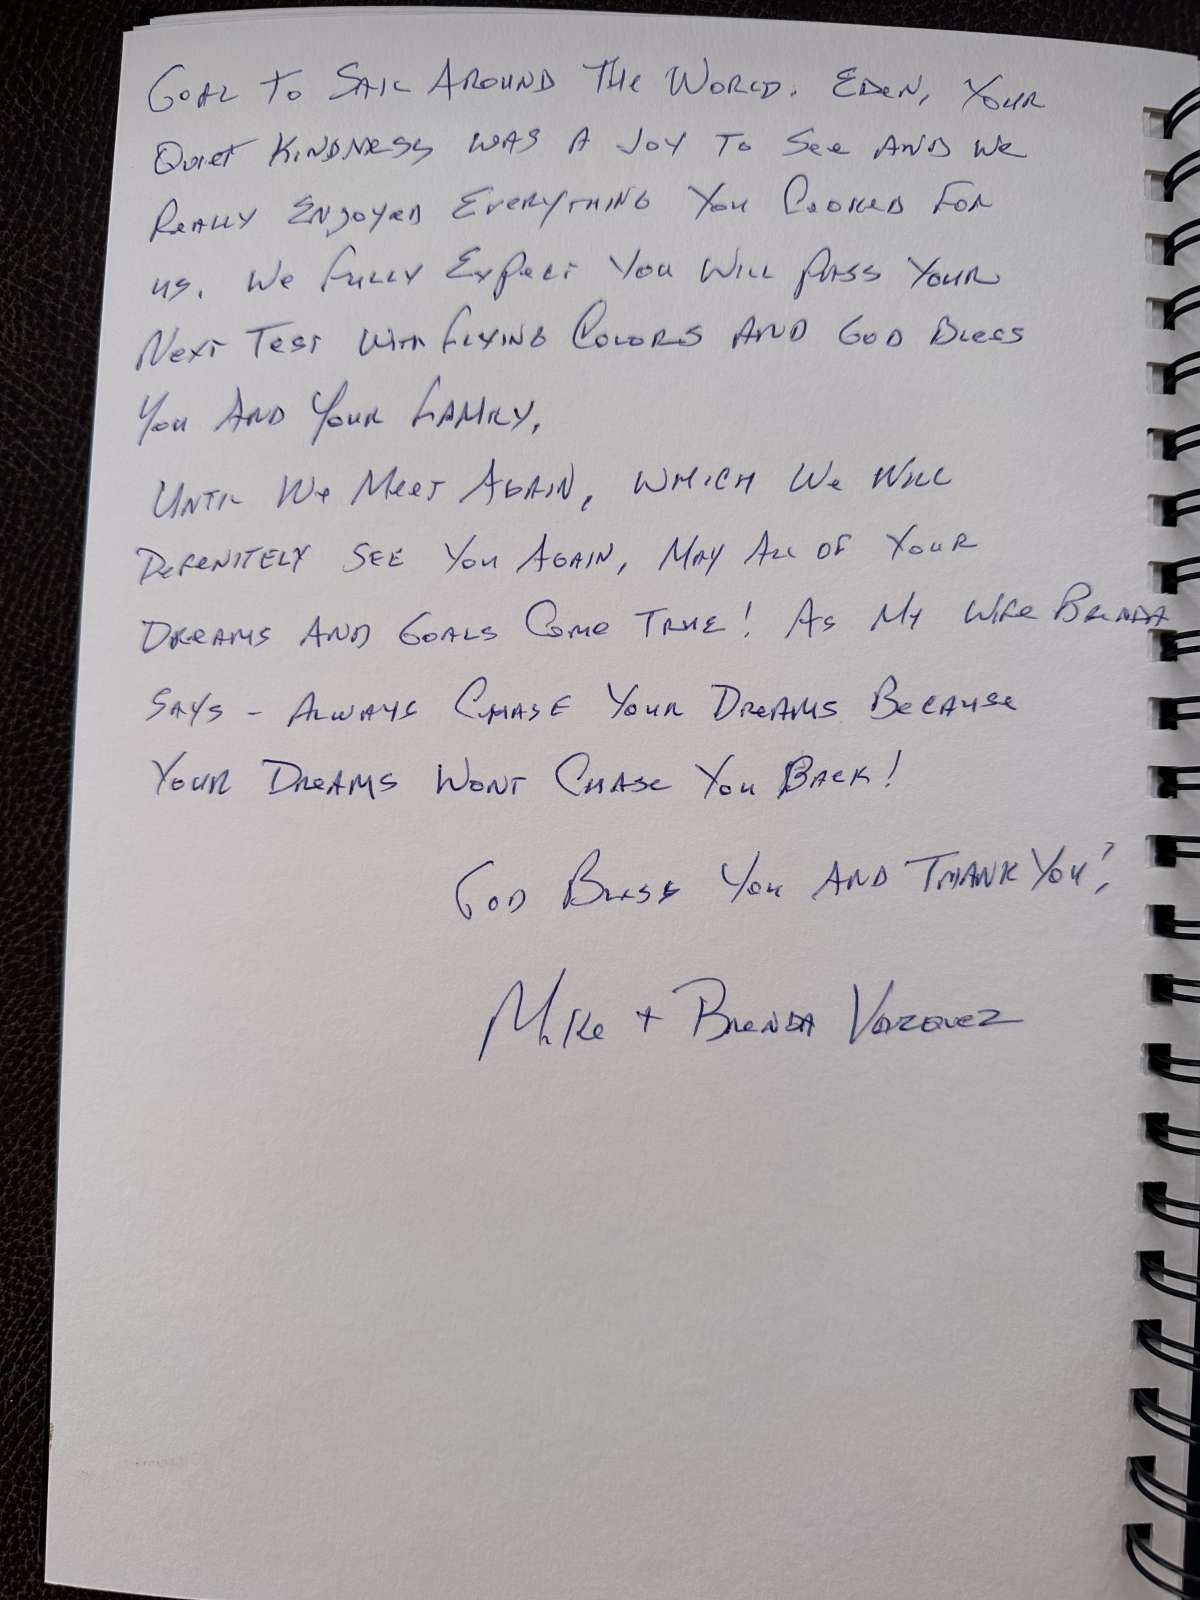 Goal to Sail Around The World. Eden, Your
Quiet Kindness was a Joy to See and We
Really Enjoyed Everything You Cooked For
us. We Fully Expect You Will Pass Your
Next Test With Flying Colors And God Bless
You And Your Family.
Until We Meet Again, Which We Will
Defenitely See You Again, May All of Your
Dreams And Goals Come True! As My Wife Brenda
Says - Always Chase Your Dreams Because
Your Dreams Wont Chase You Back!
God Bless You And Thank You!
Mike + Brenda Vazquez